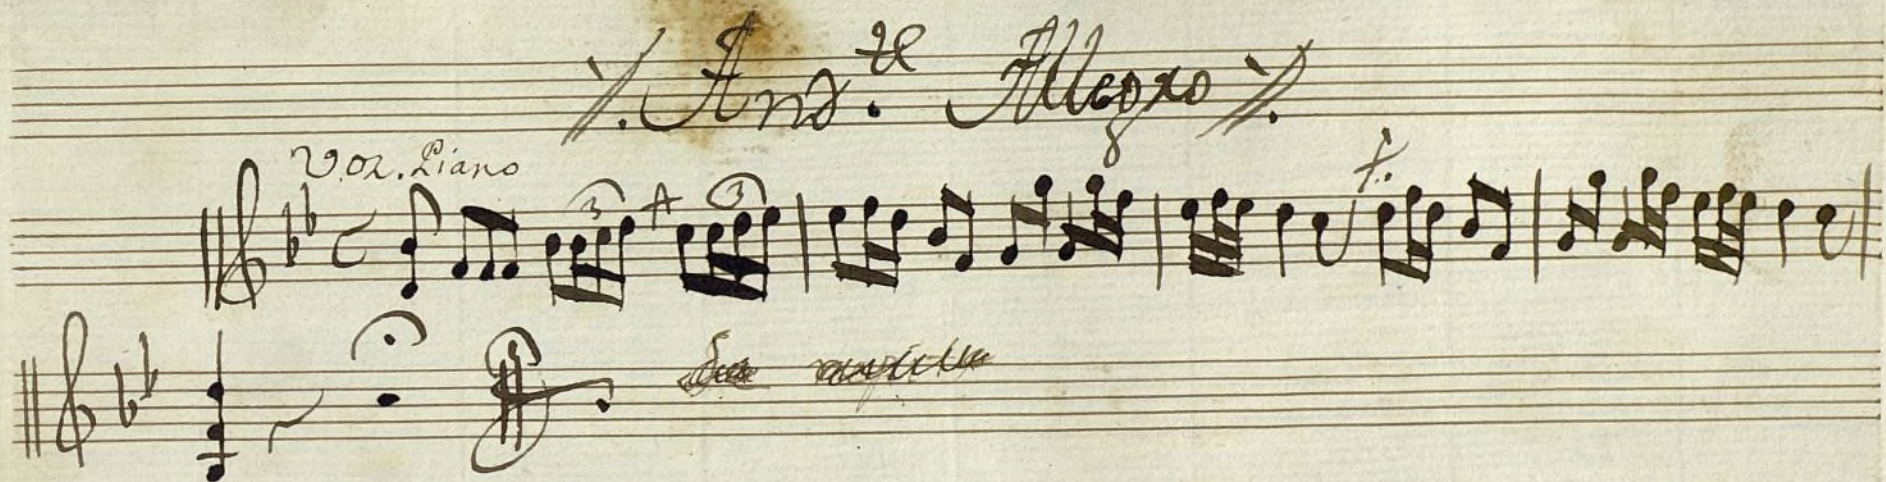 And.te Allegro
Voz. Piano
3 3 f.